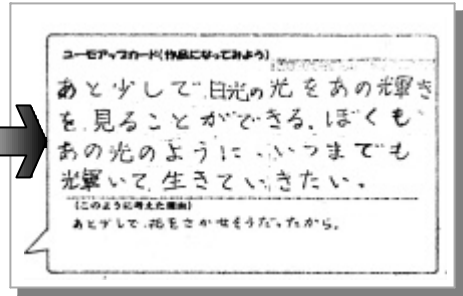 ユーモアップカード(作品になってみよう)
あと少しで、日光の光をあの輝き
を見ることができる、ぼくも
あの光のように、いつまでも
輝いて生きていきたい。
(このように考えた理由)
あと少しで、花をさかせそうだったから。